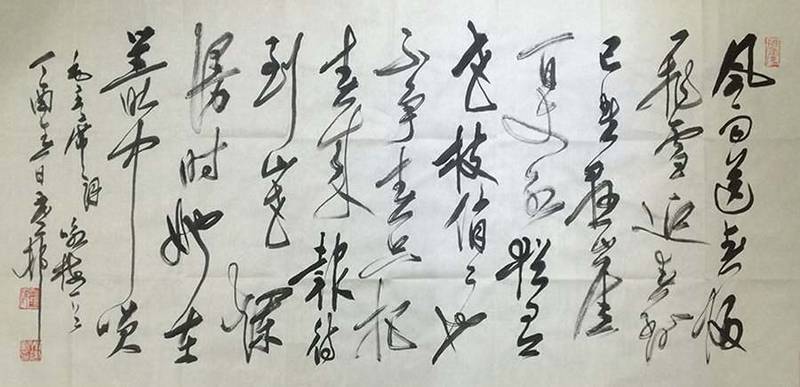 风雨送春归
飛雪迎春到
已是悬崖
百丈冰犹有
花枝俏々也
不争春只把
春来報待
到山花爛
漫时她在
叢中笑
毛主席词咏梅一首
丁酉春日